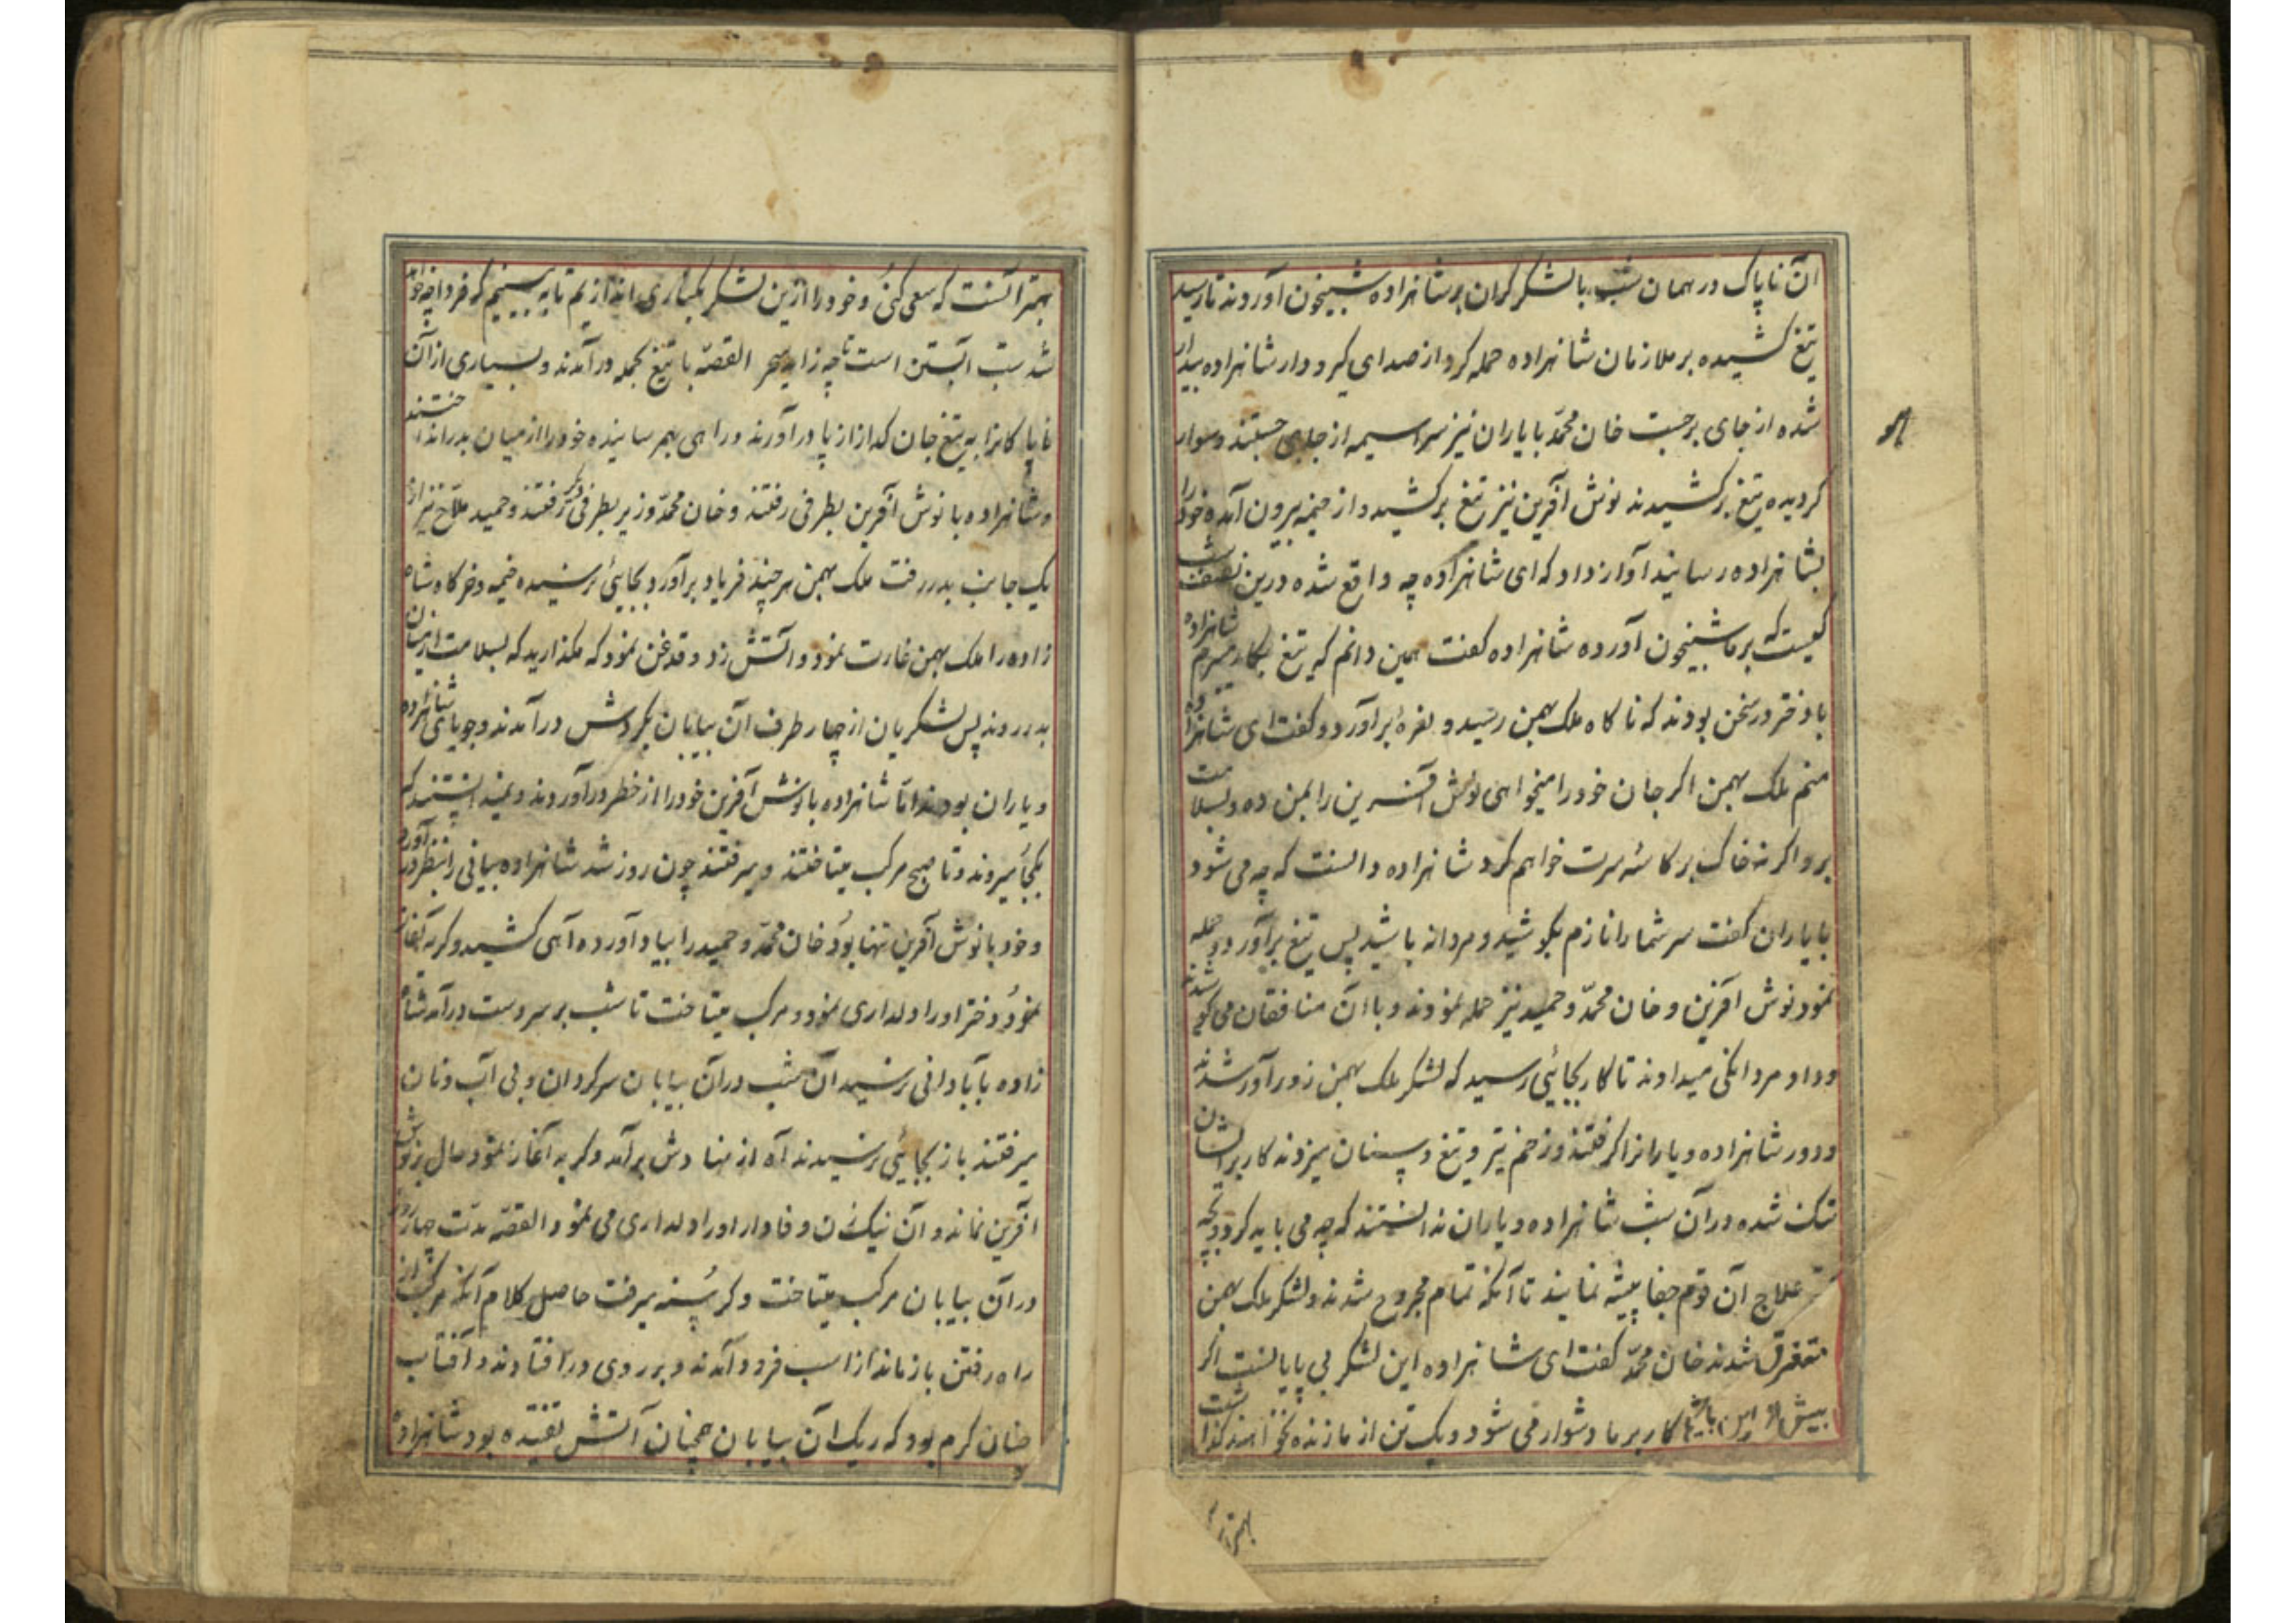 آن ناپاک در همان شب با لشکر کران بر شاهزاده شبیخون آوردند تا رسید
تیغ کشیده بر ملازمان شاهزاده حمله کرد از صدای کیر و دار شاهزاده بیدار
شده از جای برجست خان محمّد با یاران نیز سراسیمه از جای جستند و سوار
کردیده تیغ برکشیدند نوش آفرین نیز تیغ برکشید و از خیمه بیرون آمده خود را
بشاهزاده رسانید آواز داد که ای شاهزاده چه واقع شده درین نصف شب
کیست که بر ما شبیخون آورده شاهزاده کفت همین دانم که تیغ بکار میبرم شاهزاده
با دختر در سخن بودند که ناکاه ملک بهمن رسید و نعره برآورد و کفت ای شاهزاده
منم ملک بهمن اکر جان خود را میخواهی نوش آفرین را بمن ده و بسلامت
برو اکرنه خاک بر کاسهٔ سرت خواهم کرد شاهزاده دانست که چه می شود
با یاران کفت سر شما را نازم بکوشید و مردانه باشید پس تیغ برآورد و حمله
نمود نوش آفرین و خان محمّد و حمید نیز حمله نمودند و با آن منافقان می کوشیدند
و داد مردانکی میدادند تا کار بجایی رسید که لشکر ملک بهمن زور آور شدند
و دور شاهزاده و یارانرا کرفتند و زخم تیر و تیغ و سنان میزدند کار بر ایشان
تنک شده در آن شب شاهزاده و یاران ندانستند که چه می باید کرد و بچه
علاج آن قوم جفا پیشه نمایند تا آنکه تمام مجروح شدند و لشکر ملک بهمن
متفرق شدند خان محمّد کفت ای شاهزاده این لشکر بی پایانست اکر
بیش از این باشیم کار بر ما دشوار می شود و یک تن از ما زنده نخواهند کذاشت
بهتر آنست
بهتر آنست که سعی کنی و خود را ازین لشکر بکناری اندازیم تا به بینیم که فردا چه خواهد
شد شب آبستن است تا چه زاید سحر القصّه با تیغ بحمله درآمدند و بسیاری از آن
ناپاکانرا به تیغ جان کداز از پا درآورند و راهی بهم رسانیده خود را از میان بدر انداختند
و شاهزاده با نوش آفرین بطرفی رفتند و خان محمّد وزیر بطرفی دکر رفتند و حمید ملاّح نیز از
یک جانب بدر رفت ملک بهمن هر چند فریاد برآورد بجایی نرسیده خیمه و خرکاه شاه
زاده را ملک بهمن غارت نمود و آتش زد و قدغن نمود که مکذارید که بسلامت از میان
بدر روند پس لشکریان از چهار طرف آن بیابان بکردش درآمدند و جویای شاهزاده
و یاران بودند امّا شاهزاده با نوش آفرین خود را از خطر درآوردند و نمیدانستند که
بکجا میروند و تا صبح مرکب میتاختند و میرفتند چون روز شد شاهزاده بیابانی را بنظر درآورد
و خود با نوش آفرین تنها بود خان محمّد و حمید را بیاد آورده آهی کشید و کریه آغاز
نمود دختر او را دلداری نمود و مرکب میتاخت تا شب بر سر دست درآمد شاه
زاده بآبادانی نرسید آن شب در آن بیابان سرکردان و بی آب و نان
میرفتند باز بجایی نرسیدند آه از نهادش برآمد و کریه آغاز نمود حال بر نوش
آفرین نماند و آن نیک زن وفادار او را دلداری می نمود القصّه مدّت چهار روز
در آن بیابان مرکب میتاخت و کرسنه میرفت حاصل کلام آنکه مرکب از
راه رفتن باز ماند از اسب فرود آمدند و بر روی در افتادند و آفتاب
چنان کرم بود که ریک آن بیابان همچنان آتش تفتیده بود شاهزاده